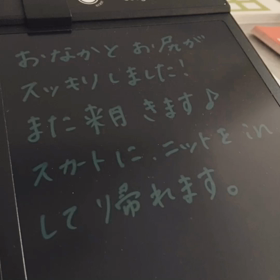 おなかとお尻が
スッキリしました!
また来月きます♪
スカートに、ニットをin
して帰れます。